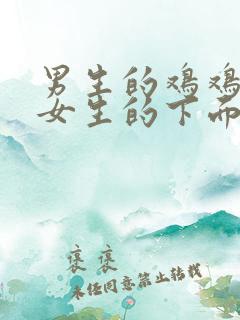 男生的鸡鸡
女生的下面
褒褒
未经同意禁止转载